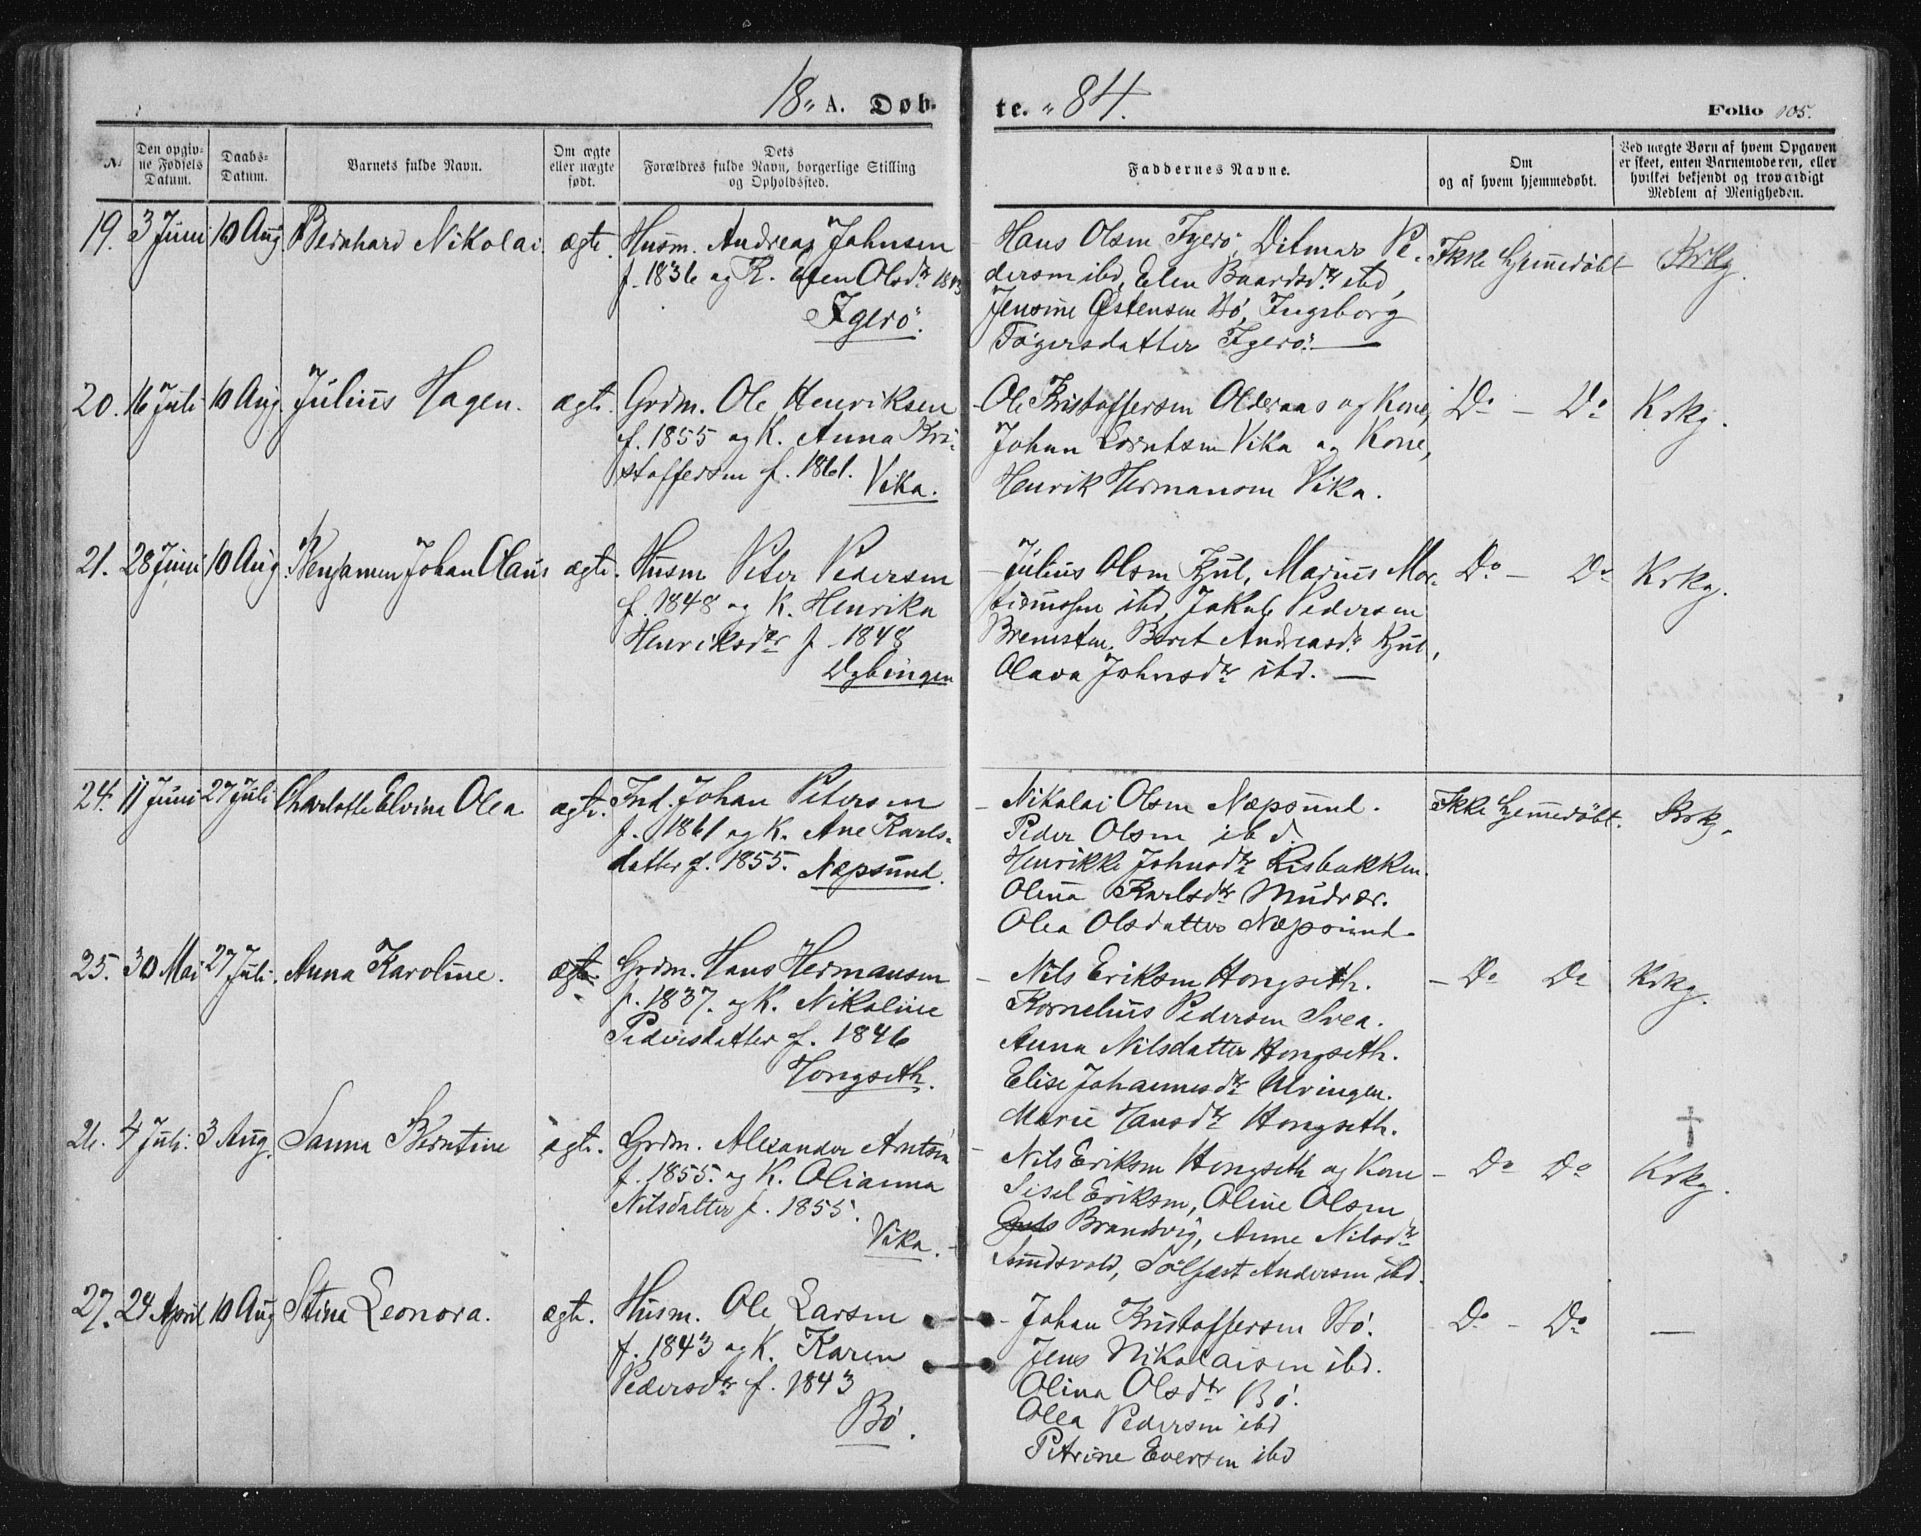 18 " A. Døb-
te. " 84.
Folio 105.
№
Den opgiv-
ne Fødsels
Datum.
Daabs-
Datum.
Barnets fulde Navn.
Om ægte
eller uægte
født.
Dets
Forældres fulde Navn, borgerlige Stilling
og Opholdssted.
Faddernes Navne.
Om
og af hvem hjemmedøbt.
Ved uægte Børn af hvem Opgaven
er skeet, enten Barnemoderen, eller
hvilket bekjendt og troværdigt
Medlem af Menigheden.
19. 3 Juni 10 Aug Bernhard Nikolai. ægte. Husm. Andreas Johnsen
f. 1836 og K. Elen Olsdr. 1843
Igerø.
Hans Olsen Igerø, Ditmar Pe-
dersen ibd, Elen Baardsdtr ibd,
Jensine Østensen Bø, Ingeborg
Tøgersdatter Igerø. —
Ikke hjemmedøbt Krkg.
20. 16 Juli 10 Aug. Julius Hagen. ægte. Grdm. Ole Henriksen
f. 1855 og K. Anna Kri-
stoffersen f. 1861.
Vika.
Ole Kristoffersen Olderaas og Kone,
Johan Lorntsen Vika og Kone,
Henrik Hermansen Vika.
Do — Do Krkg.
21. 28 Juni 10 Aug. Benjamen Johan Olaus ægte. Husm Peter Pedersen
f. 1848 og K. Henrika
Henriksdtr f. 1848
Dybingen
Julius Olsen Kjul, Marius Mor-
ibd, Jakob Pedersen
Bremsten, Beret Andreasdr Kjul,
Olava Johnsdtr ibd. —
Do — Do Krkg.
24. 11 Juni 27 Juli Charlotte Elvina Olea ægte. Ind. Johan Petersen
f. 1861 og K. Ane Karls-
datter f. 1855. Næpsund.
Nikolai Olsen Næpsund.
Peder Olsen ibd.
Henrikke Johnsdtr Risbakken.
Olina Karlsdtr Mudvær.
Olea Olsdatter Næpsund.
Ikke hjemmedøbt. Krkg.
25. 30 Mai 27 Juli. Anna Karoline. ægte. Grdm. Hans Hermansen
f. 1837. og K. Nikoline
Pedersdatter f. 1846
Hongseth.
Nils Eriksen Hongseth.
Kornelius Pedersen Svea.
Anna Nilsdatter Hongseth.
Elise Johannesdtr Ulvingen.
Marie Hansdtr Hongseth.
— Do Do Krkg.
26. 4 Juli. 3 Aug. Sanna Berntine ægte. Grdm. Alexander Arntsen
f. 1855. og K. Olianna
Nilsdatter f. 1855.
Vika.
Nils Eriksen Hongseth og Kone
Sisel Eriksen, Oline Olsen
Brandvig, Anne Nilsdtr
Sundsvold, Solfæst Andersen ibd.
— Do Do † Krkg.
27. 24 April 10 Aug Stina Leonora. ægte. Husm. Ole Larsen
f. 1843 og K. Karen
Pedersdtr f. 1843
Bø.
Johan Kristoffersen Bø.
Jens Nikolaisen ibd.
Olina Olsdtr Bø.
Olea Pedersen ibd
Petrine Eversen ibd
Do — Do —